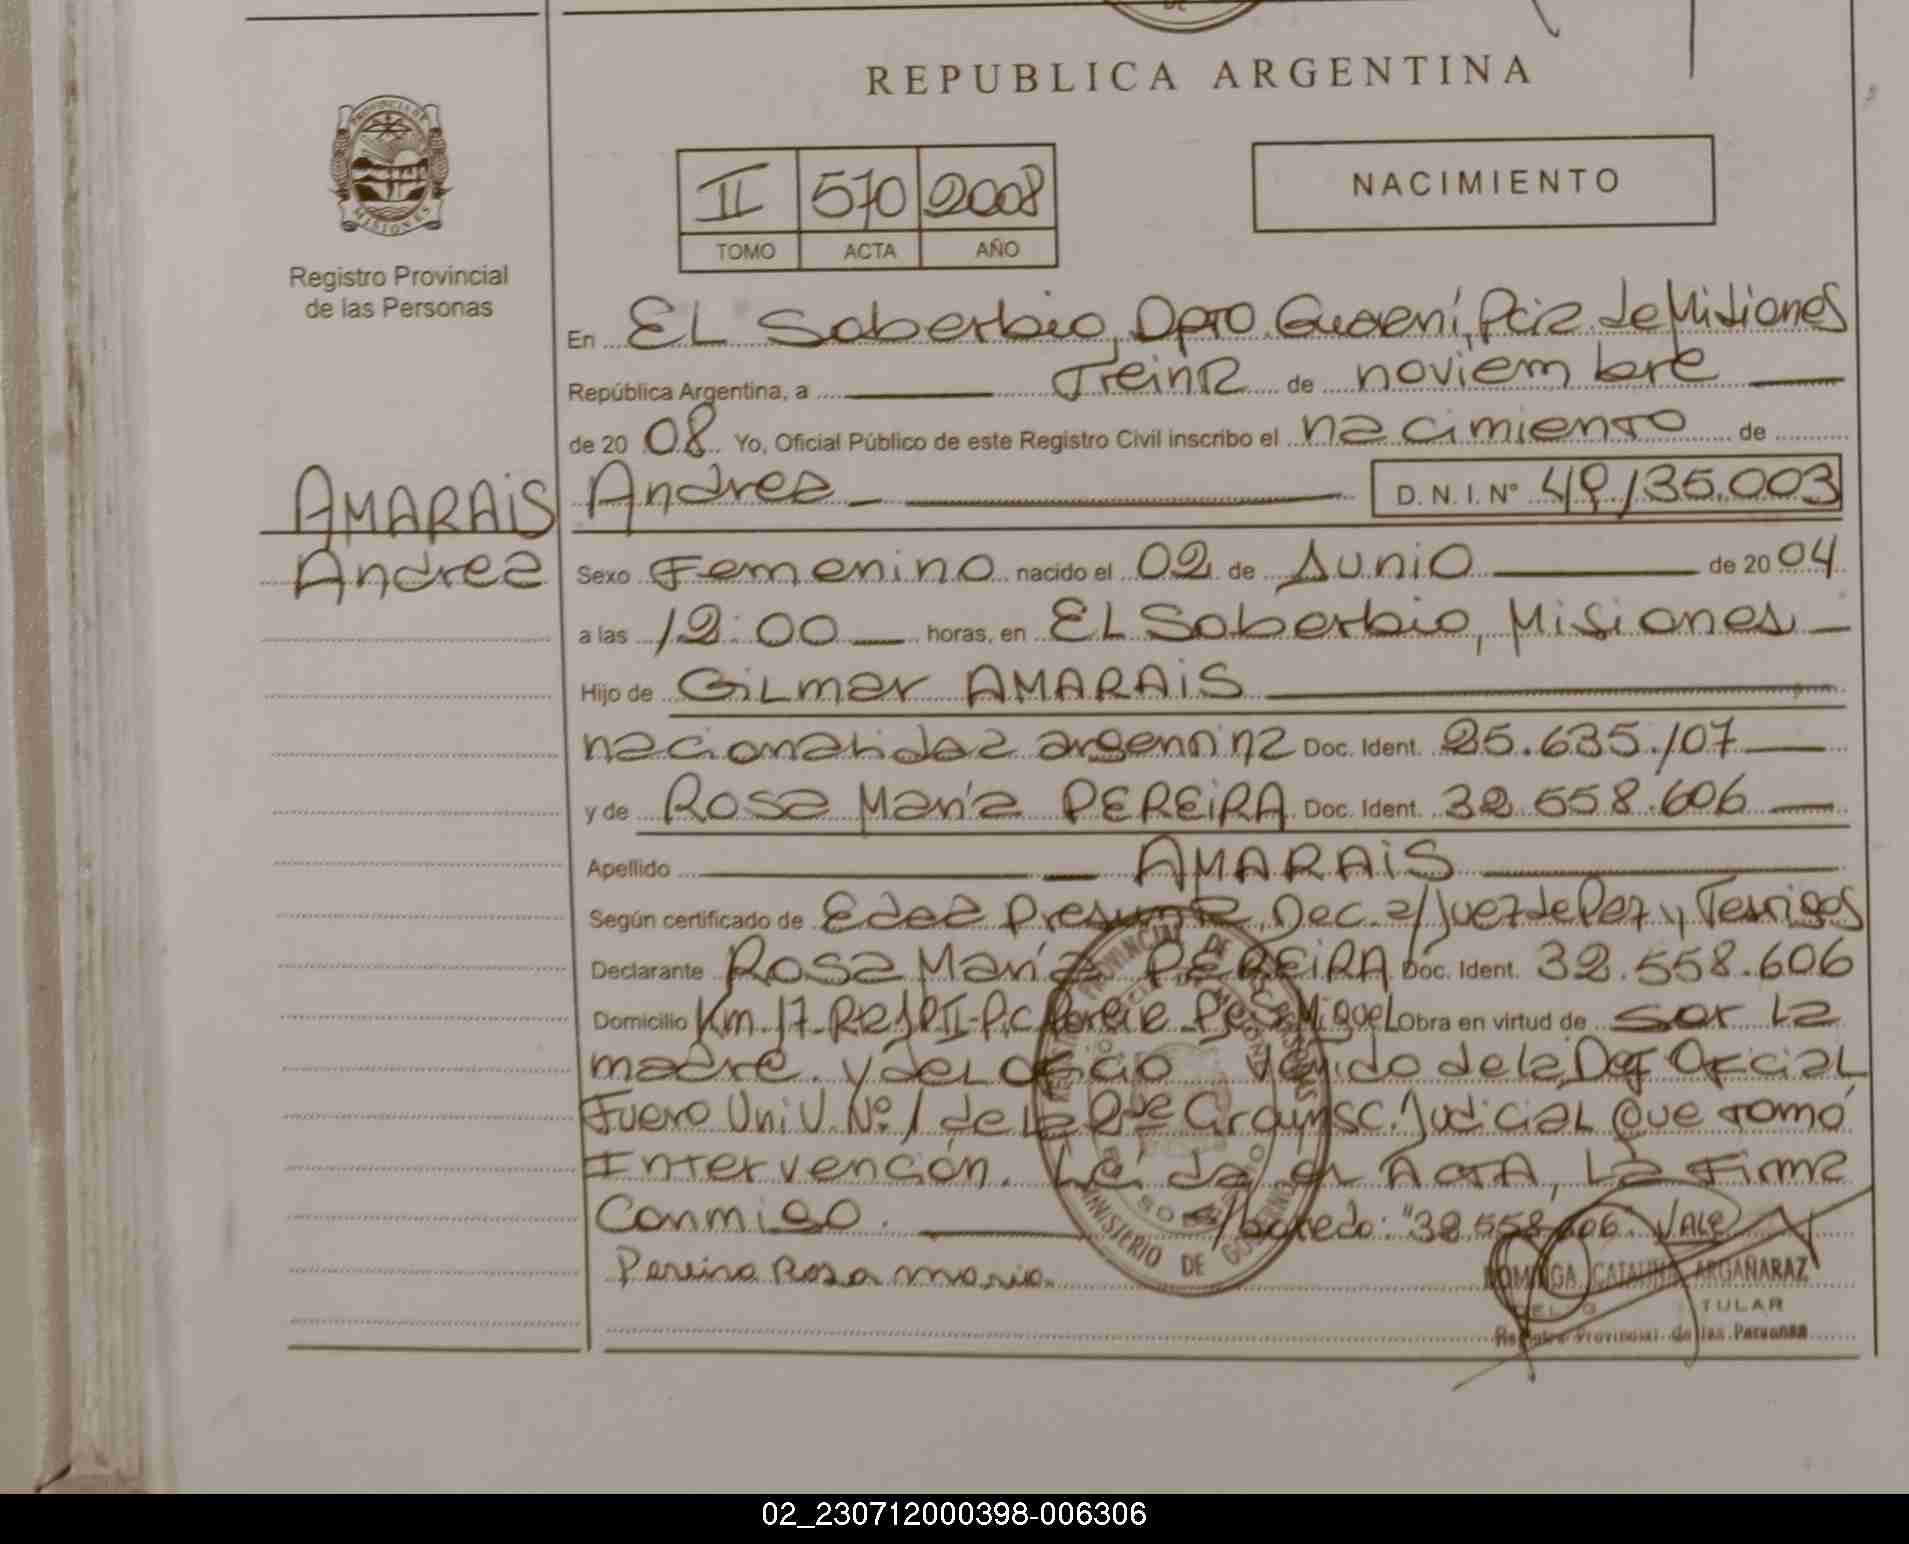 REPUBLICA ARGENTINA
PROVINCIA DE MISIONES
Registro Provincial
de las Personas
II 570 2008
TOMO ACTA AÑO
NACIMIENTO
En EL Soberbio, Dpto. Guaraní, Pcia. de Misiones
República Argentina, a Treinta de noviembre
de 2008 Yo, Oficial Público de este Registro Civil inscribo el nacimiento de
AMARAIS
Andrea
Andrea D. N. I. Nº 49.135.003
Sexo Femenino nacido el 02 de Junio de 2004
a las 12:00 horas, en EL Soberbio, Misiones
Hijo de GiLmar AMARAiS
nacionalidad argentina Doc. Ident. 25.635.107
y de Rosa María PEREiRA Doc. Ident. 32.558.606
Apellido AMARAiS
Según certificado de Edad Presunta, Dec. a/Juez de Paz y Testigos
Declarante Rosa María PEREiRA Doc. Ident. 32.558.606
Domicilio Km. 17 - Obra en virtud de ser La
madre. y del oficio venido de la Def. Oficial
Fuero Univ. Nº 1 de la 2da Circunsc. Judicial que tomó
Intervención. Leída el ActA, La Firma
Conmigo. s/borrado: "32.558.606" VALE
Pereira Rosa Maria.
CATALINA ARGAÑARAZ
TULAR
Registro Provincial de las Personas
MINISTERIO DE
02_230712000398-006306